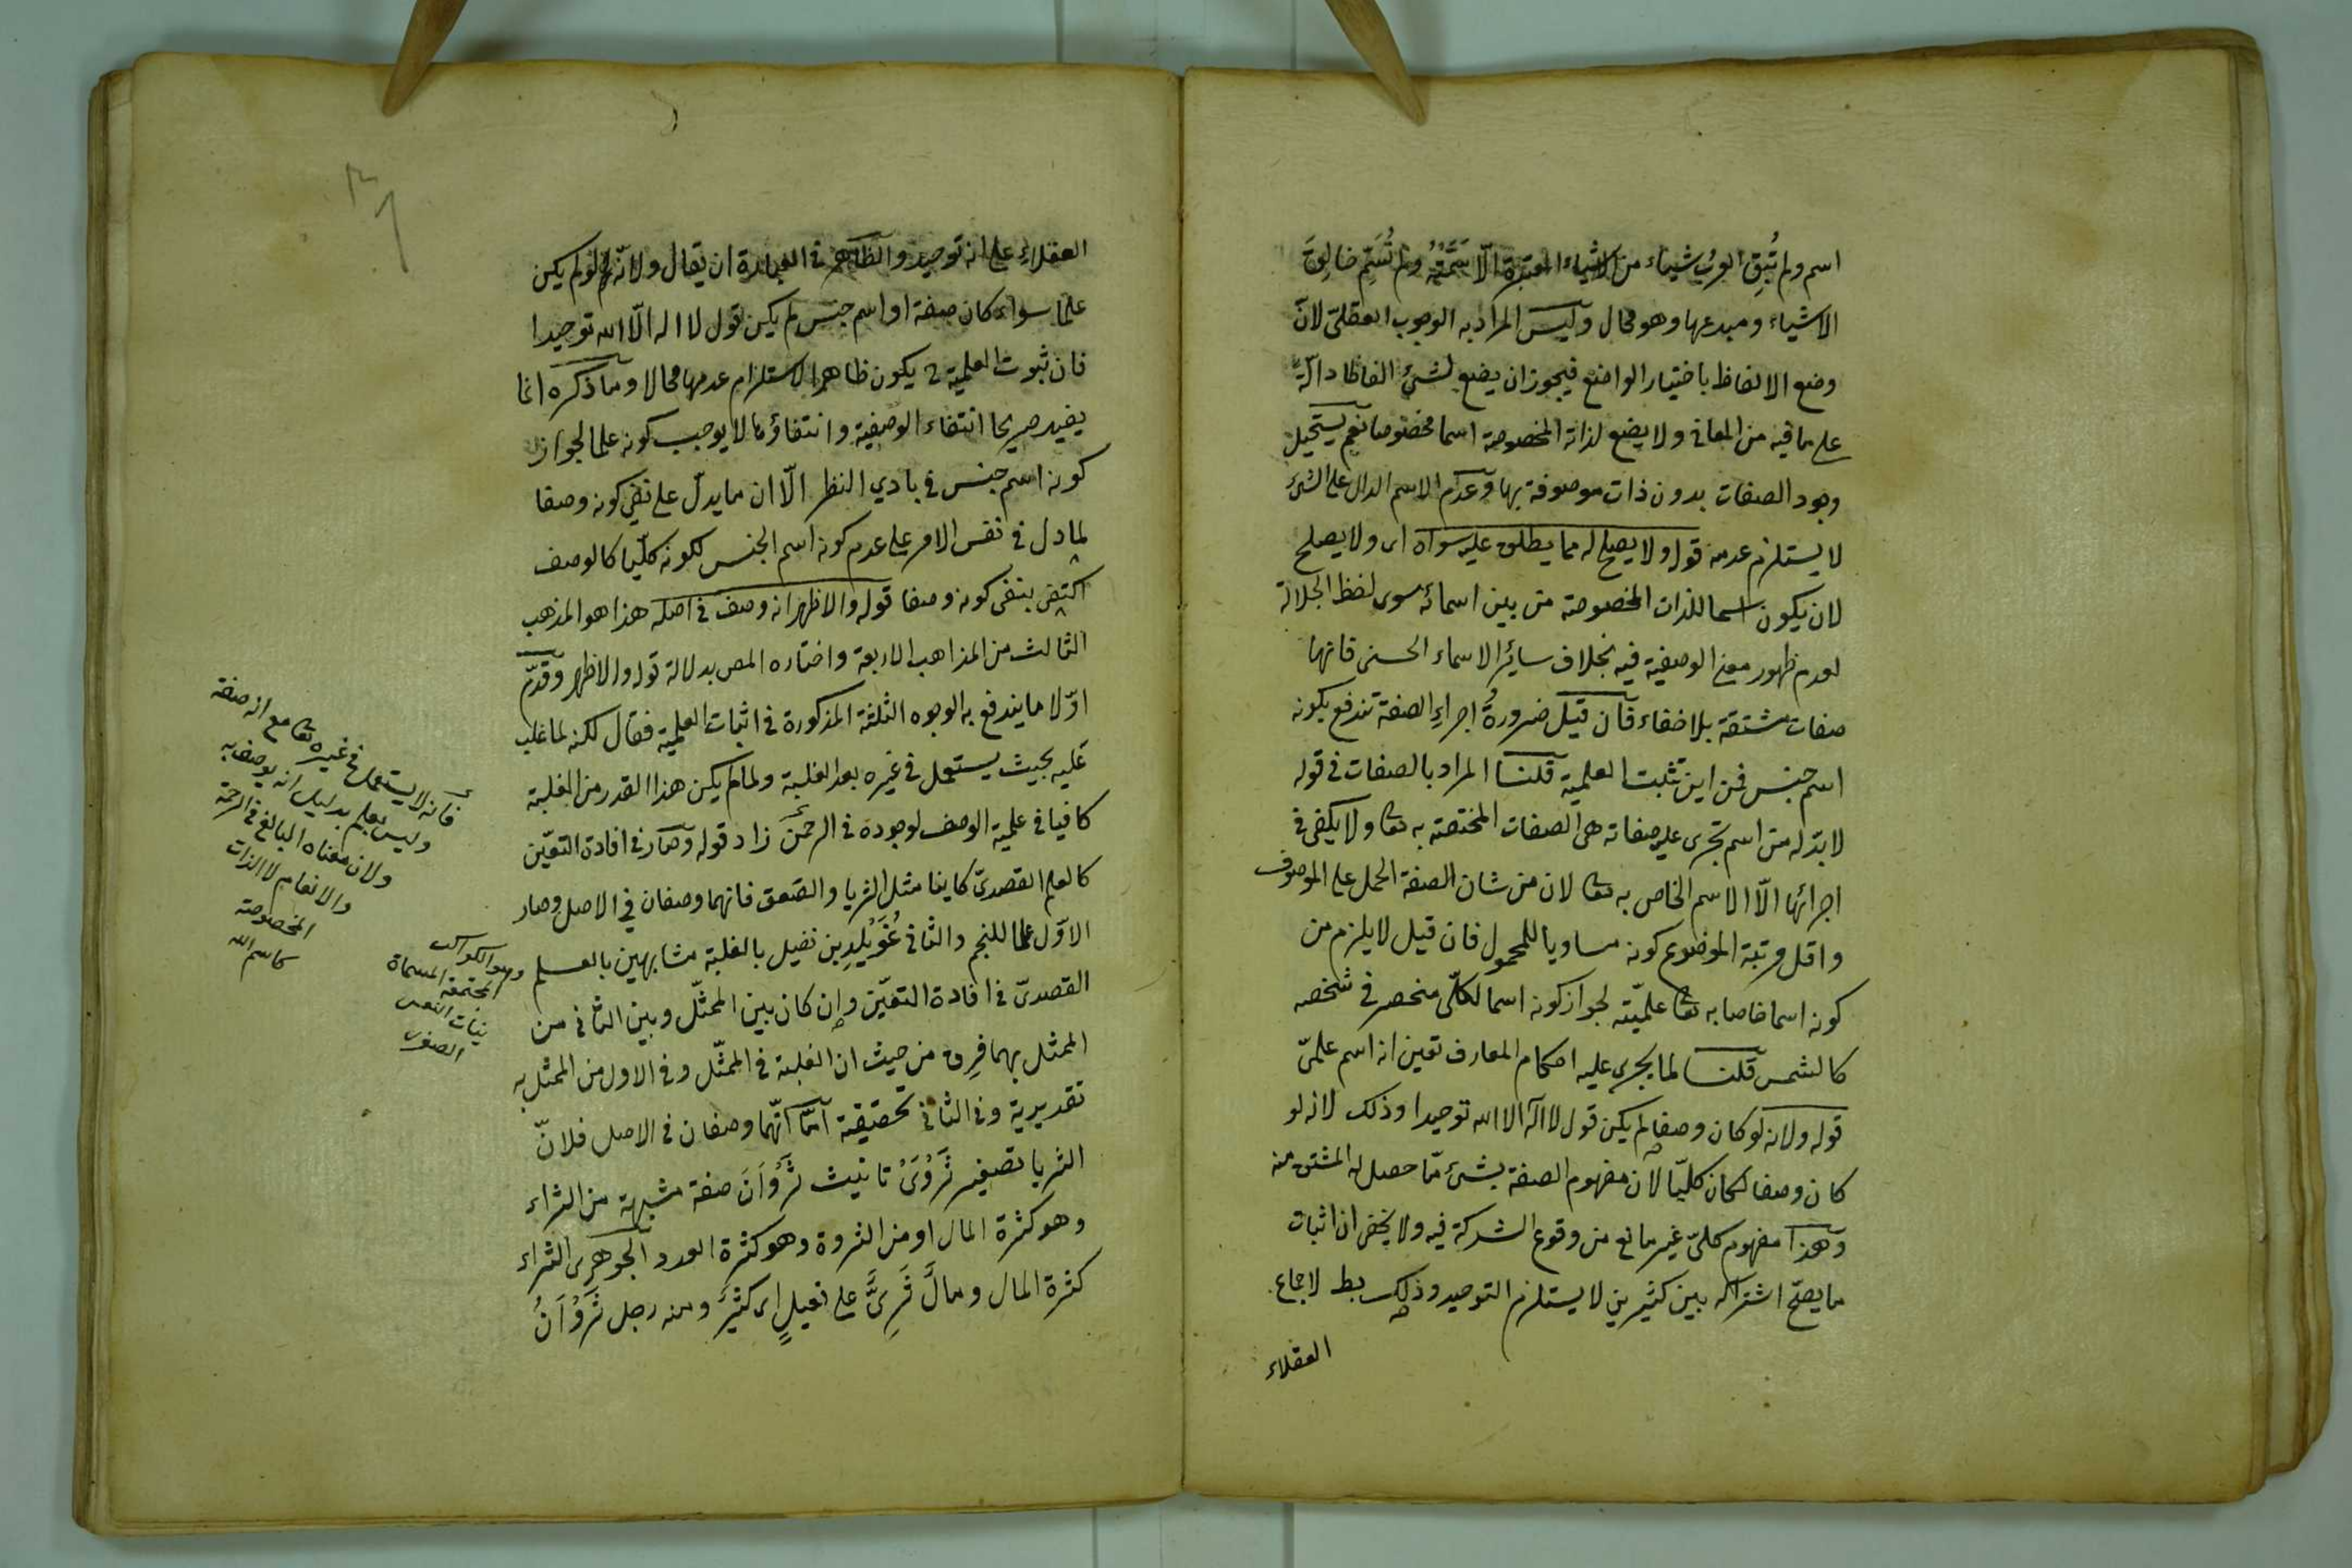 اسم ولم تُبقِ العربُ شيئاء من الاشياء المعتبرة الّا سَمَّتْهُ ولم تُسَمِّ خالِقَ
الاشياء ومبدعها وهو محال وليس المراد به الوجوب العقليّ لانّ
وضع الالفاظ باختيار الواضع فيجوز ان يضع لشئ الفاظا دالّة
على ما فيه من المعانى ولا يضع لذاته المخصوصة اسما مخصوصا نعم يستحيل
وجود الصفات بدون ذات موصوفة بها وعدم الاسم الدال على الشئ
لا يستلزم عدمه قوله ولا يصلح له مما يطلق عليه سواه اى ولا يصلح
لان يكون اسما للذات المخصوصة من بين اسمائه سوى لفظ الجلالة
لعدم ظهور معنى الوصفية فيه بخلاف سائر الاسماء الحسنى فانها
صفات مشتقة بلا خفاء فان قيل ضرورةُ اجراءِ الصفة تندفع بكونه
اسم جنس فمن اين تثبت العلمية قلنا المراد بالصفات فى قوله
لا بدّ له من اسم تجرى عليه صفاته هى الصفات المختصة به تعا ولا يكفى فى
اجرائها الّا الاسم الخاص به تعا لان من شان الصفة الحمل على الموصوف
واقل مرتبة الموضوع كونه مساويا للمحمول فان قيل لا يلزم من
كونه اسما خاصا به تعا علميّته لجواز كونه اسما لكلّى منحصر فى شخصه
كالشمس قلنا لما يجرى عليه احكام المعارف تعين انه اسم علمىّ
قوله ولانه لو كان وصفا لم يكن قول لا اله الا الله توحيدا وذلك لانه لو
كان وصفا لكان كليّا لان مفهوم الصفة بشئ مّا حصل له المشتق منه
وهذا مفهوم كلىّ غير مانع من وقوع الشركة فيه ولا يخفى ان اثبات
ما يصحّ اشتراكه بين كثيرين لا يستلزم التوحيد وذلك بط لاجماع
العقلاء
العقلاء على انه توحيد والظاهر فى العبارة ان يقال ولانّه لو لم يكن
علما سواء كان صفة او اسم جنس لم يكن قول لا اله الّا الله توحيدا
فان ثبوت العلمية ح يكون ظاهرا لاستلزام عدمها محالا وما ذكره انما
يفيد صريحا انتفاء الوصفية وانتفاؤها لا يوجب كونه علما لجواز
كونه اسم جنس فى بادي النظر الّا ان ما يدلّ على نفى كونه وصفا
لما دل فى نفس الامر على عدم كونه اسم الجنس لكونه كليّا كالوصف
اكتفى بنفى كونه وصفا قوله والاظهر انه وصف فى اصله هذا هو المذهب
الثالث من المذاهب الاربعة واختاره المص بدلالة قوله والاظهر وقدّم
اوّلا ما يندفع به الوجوه الثلثة المذكورة فى اثبات العلمية فقال لكنه لما غلب
عليه بحيث يستعمل فى غيره بعد الغلبة ولما لم يكن هذا القدر من الغلبة
كافيا فى علمية الوصف لوجوده فى الرحمن زاد قوله وصار فى افادة التعيّن
كالعلم القصدىّ كاينا مثل الثريا والصّعق فانهما وصفان فى الاصل وصار
الاوّل علما للنجم والثانى لخُوَيْلِدِ بن نفيل بالغلبة مشابهين بالعلم
القصدىّ فى افادة التعيّن وإن كان بين الممثّل وبين الثانى من
الممثل بهما فرق من حيث ان الغلبة فى الممثّل وفى الاول من الممثل به
تقديرية وفى الثانى تحقيقية امّا انّهما وصفان فى الاصل فلانّ
الثريا تصغير ثَرْوَىْ تانيث ثَرْوَانَ صفة مشبهة من الثراء
وهو كثرة المال او من الثروة وهو كثرة العدد الجوهرى الثراء
كثرة المال ومالٌ ثَرِىٌّ على فعيلٍ اى كثيرٌ ومنه رجل ثَرْوَانُ
فانه لا يستعمل فى غيره تعا مع انه صفة
وليس بعلم بدليل انه يوصف به
ولان معناه البالغ فى الرحمة
والانعام لا الذات
المخصوصة
كاسم الله
وهو الكواكب
المجتمعة المسماة
بنات النعش
الصغرى